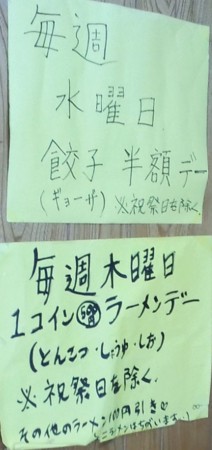 毎週
水曜日
餃子 半額デー
(ギョーザ) ※祝祭日を除く。
毎週木曜日
1コイン500円ラーメンデー
(とんこつ・しょうゆ・しお)
※祝祭日を除く。
その他のラーメン100円引き
(ミニラーメンはちがいます。)